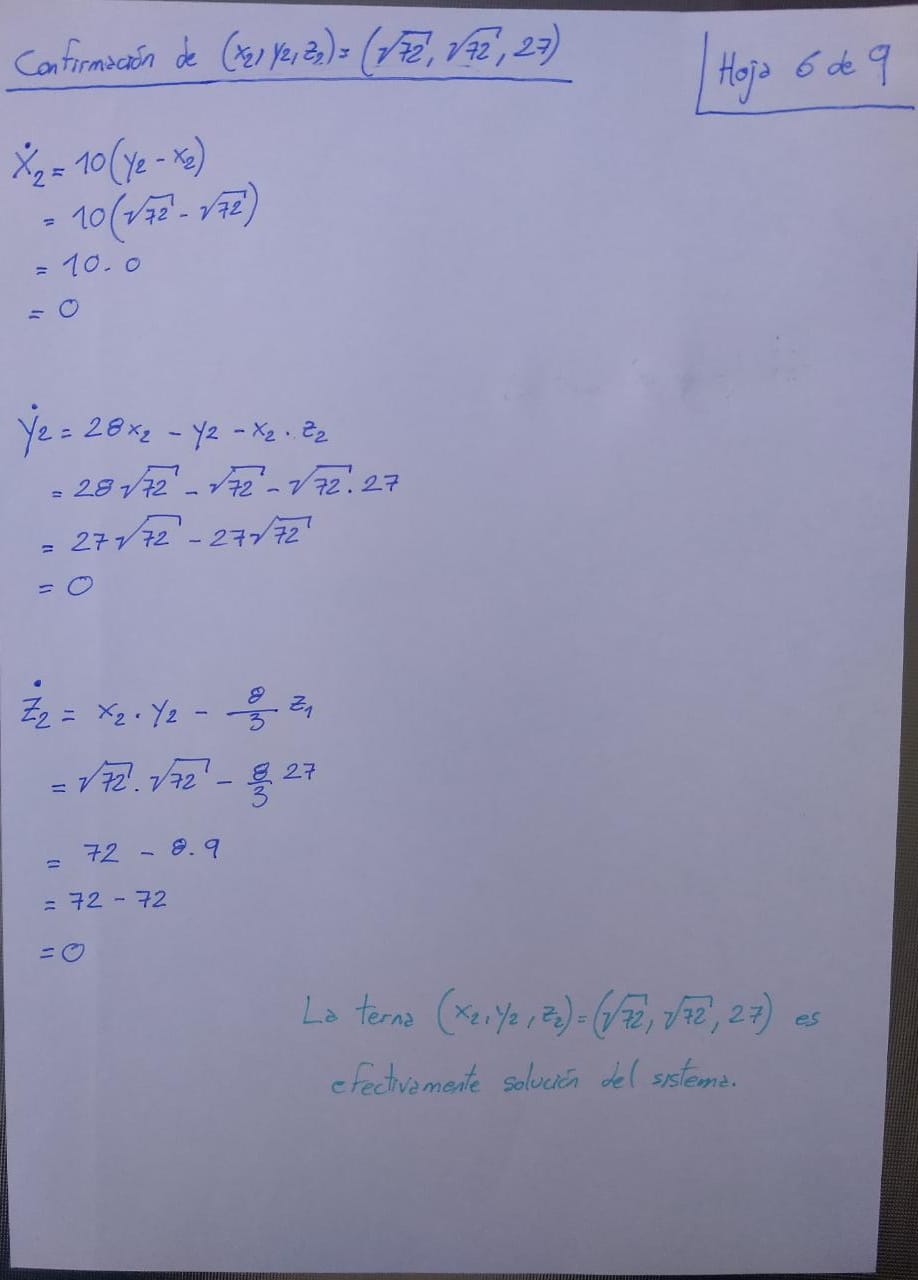 Confirmación de (x₂, y₂, z₂) = (√72, √72, 27)
Hoja 6 de 9
ẋ₂ = 10(y₂ - x₂)
= 10(√72 - √72)
= 10 · 0
= 0
ẏ₂ = 28x₂ - y₂ - x₂ · z₂
= 28√72 - √72 - √72 · 27
= 27√72 - 27√72
= 0
ż₂ = x₂ · y₂ - 8/3 z₁
= √72 · √72 - 8/3 27
= 72 - 8 · 9
= 72 - 72
= 0
La terna (x₂, y₂, z₂) = (√72, √72, 27) es
efectivamente solución del sistema.